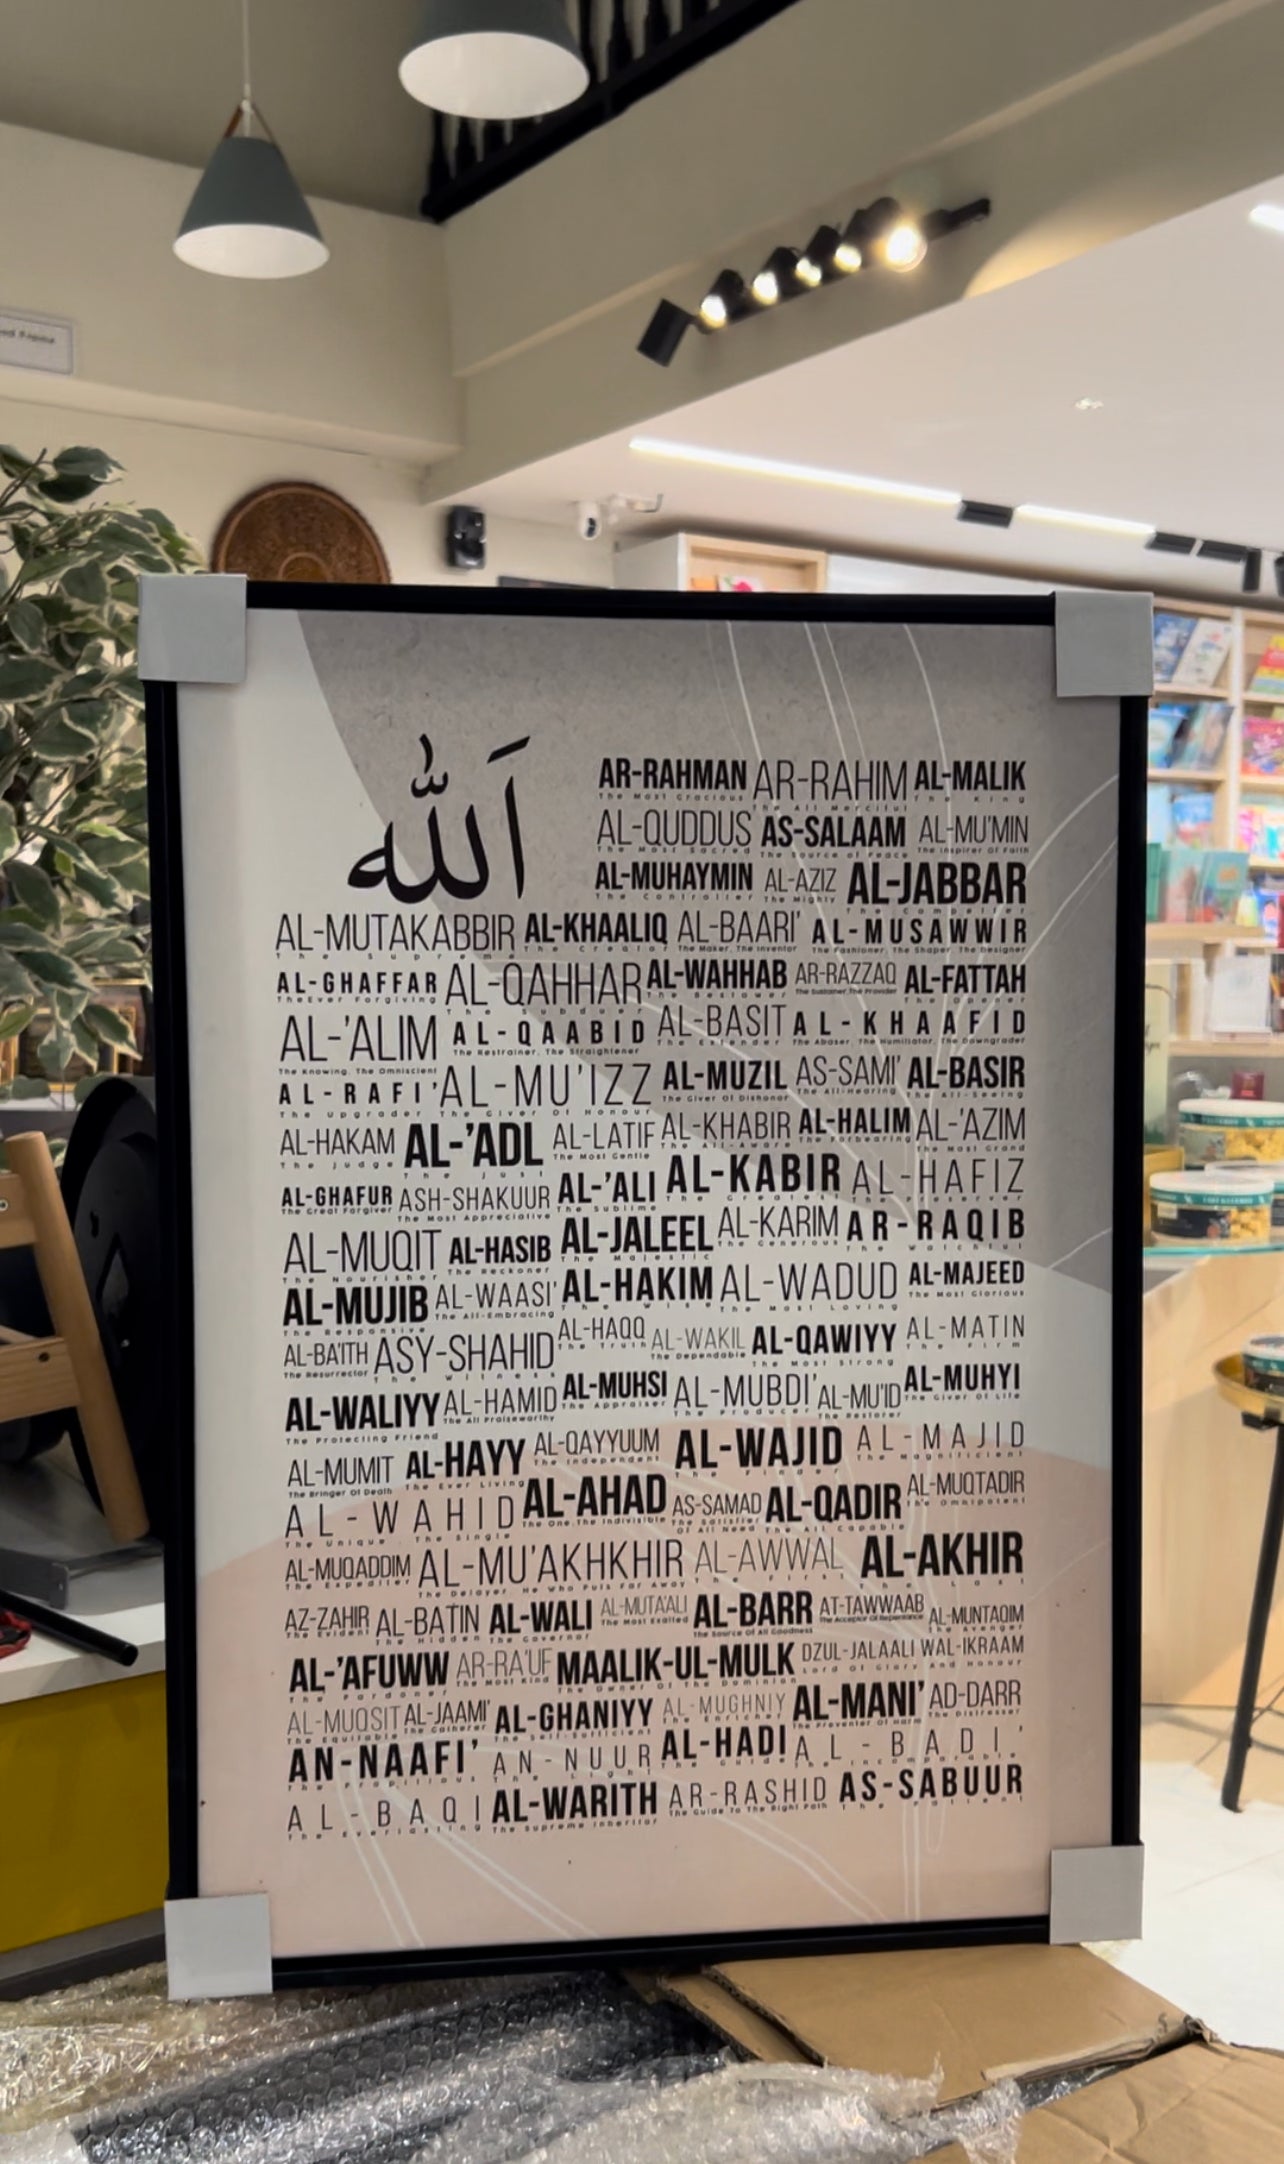 الله
AR-RAHMAN AR-RAHIM AL-MALIK
The Most Gracious The All Merciful The King
AL-QUDDUS AS-SALAAM AL-MU'MIN
The Most Sacred The Source of Peace The Inspirer Of Faith
AL-MUHAYMIN AL-AZIZ AL-JABBAR
The Controller The Mighty The Compeller
AL-MUTAKABBIR AL-KHAALIQ AL-BAARI' AL-MUSAWWIR
The Supreme The Creator The Maker, The Inventor The Fashioner, The Shaper, The Designer
AL-GHAFFAR AL-QAHHAR AL-WAHHAB AR-RAZZAQ AL-FATTAH
The Ever Forgiving The Subduer The Bestower The Sustainer, The Provider The Opener
AL-'ALIM AL-QAABID AL-BASIT AL-KHAAFID
The Knowing, The Omniscient The Restrainer, The Straightener The Extender The Abaser, The Humiliator, The Downgrader
AL-RAFI' AL-MU'IZZ AL-MUZIL AS-SAMI' AL-BASIR
The Upgrader The Giver Of Honour The Giver Of Dishonor The All-Hearing The All-Seeing
AL-HAKAM AL-'ADL AL-LATIF AL-KHABIR AL-HALIM AL-'AZIM
The Judge The Just The Most Gentle The All-Aware The Forbearing The Most Grand
AL-GHAFUR ASH-SHAKUUR AL-'ALI AL-KABIR AL-HAFIZ
The Great Forgiver The Most Appreciative The Sublime The Greatest The Preserver
AL-MUQIT AL-HASIB AL-JALEEL AL-KARIM AR-RAQIB
The Nourisher The Reckoner The Majestic The Generous The Watchful
AL-MUJIB AL-WAASI' AL-HAKIM AL-WADUD AL-MAJEED
The Responsive The All-Embracing The Wise The Most Loving The Most Glorious
AL-BA'ITH ASY-SHAHID AL-HAQQ AL-WAKIL AL-QAWIYY AL-MATIN
The Resurrector The Witness The Truth The Dependable The Most Strong The Firm
AL-WALIYY AL-HAMID AL-MUHSI AL-MUBDI' AL-MU'ID AL-MUHYI
The Protecting Friend The All Praiseworthy The Appraiser The Producer The Restorer The Giver Of Life
AL-MUMIT AL-HAYY AL-QAYYUUM AL-WAJID AL-MAJID
The Bringer Of Death The Ever Living The Independent The Finder The Magnificient
AL-WAHID AL-AHAD AS-SAMAD AL-QADIR AL-MUQTADIR
The Unique, The Single The One, The Indivisible The Satisfier Of All Need The All Capable The Omnipotent
AL-MUQADDIM AL-MU'AKHKHIR AL-AWWAL AL-AKHIR
The Expediter The Delayer, He Who Puts Far Away The First The Last
AZ-ZAHIR AL-BATIN AL-WALI AL-MUTA'ALI AL-BARR AT-TAWWAAB AL-MUNTAQIM
The Evident The Hidden The Governor The Most Exalted The Source of All Goodness The Acceptor Of Repentance The Avenger
AL-'AFUWW AR-RA'UF MAALIK-UL-MULK DZUL-JALAALI WAL-IKRAAM
The Pardoner The Most Kind The Owner Of The Dominion Lord Of Glory And Honour
AL-MUQSIT AL-JAAMI' AL-GHANIYY AL-MUGHNIY AL-MANI' AD-DARR
The Equitable The Gatherer The Self-Sufficient The Enricher The Preventer Of Harm The Distresser
AN-NAAFI' AN-NUUR AL-HADI AL-BADI'
The Propitious The Light The Guide The Incomparable
AL-BAQI AL-WARITH AR-RASHID AS-SABUUR
The Everlasting The Supreme Inheritor The Guide To The Right Path The Patient